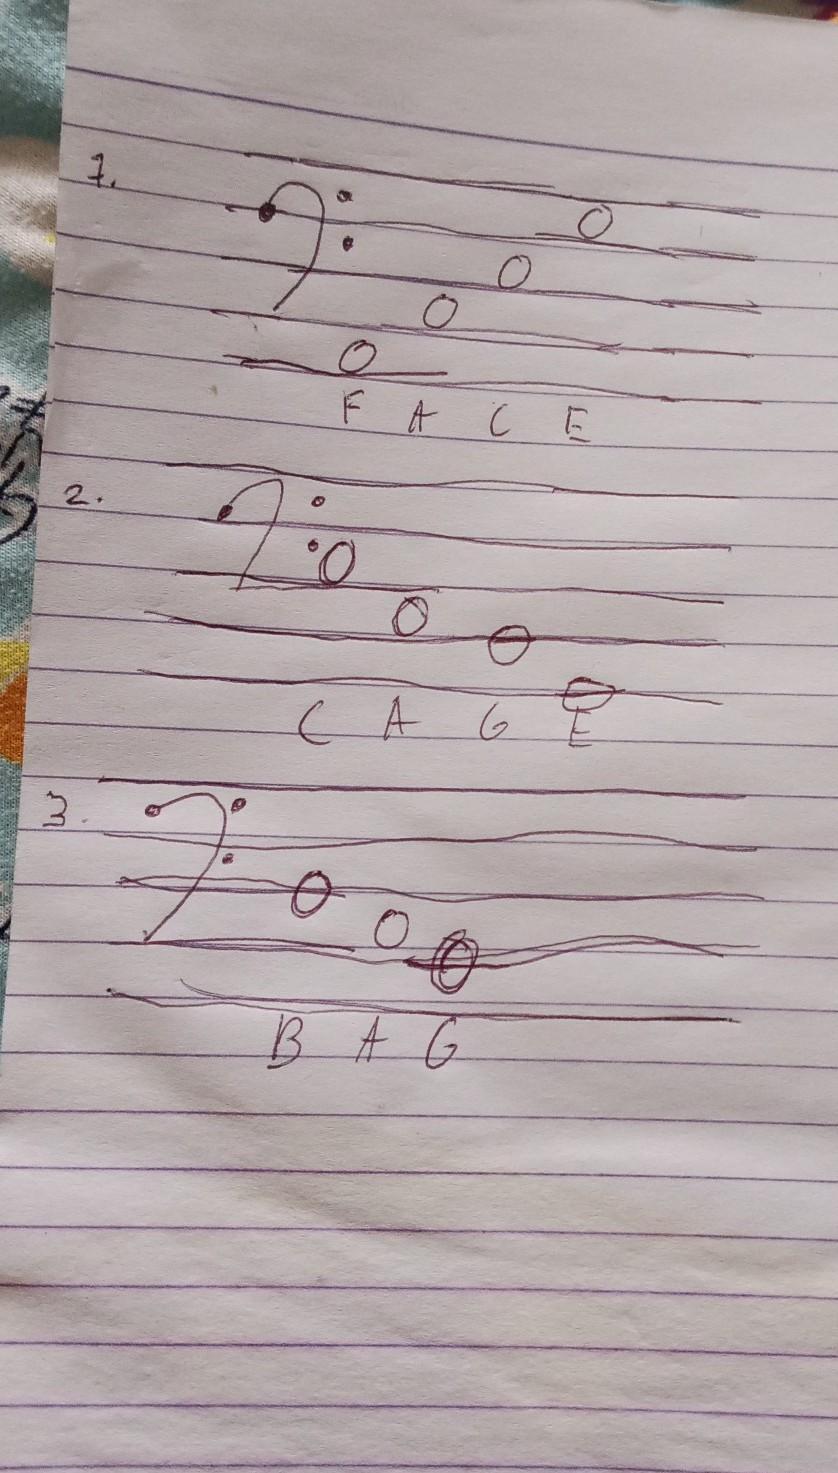 1.
F A C E
2.
C A G E
3.
B A G